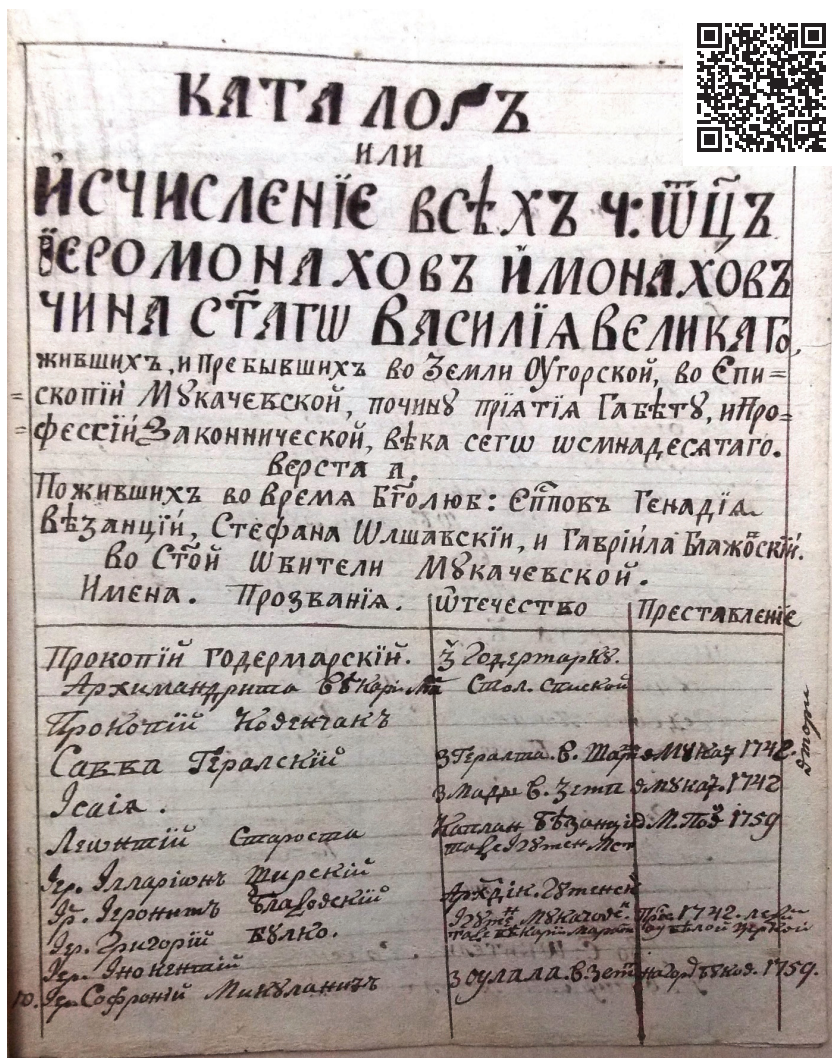 КАТАЛОГЪ
ИЛИ
ИСЧИСЛЄНЇЄ ВСѢХЪ Ч: Ѿц҃Ъ
ЇЄРОМОНАХОВЪ И МОНАХОВЪ
ЧИНА СТ҃АГѠ ВАСИЛЇѦ ВЄЛИКАГО,
живших̾ъ, и пребывшихъ во Земли Оугорской, во Епи=
скопїи Мꙋкачевской, по чинꙋ прїѧтїѧ Габѣтꙋ, и Про=
фессїи Законнической, вѣка сегѡ ѡсмнадесѧтаго.
верста а҃.
Поживших̾ъ во времѧ Бг҃олюб: Єп҃повъ Генадїѧ
Бѣзанцїи, Стефана Ѡлшавскїи, и Гавріила Блажовскїи.
во Ст҃ой Ѡбители Мꙋкачевской.
Имена. Прозванїѧ. Ѿтечество Преставленїе
Прокопїй Годермарскїй. З Годермаркꙋ.
Архимандрита Стол. Спиской
Прокопїй Коденчакъ
Савва Гералскїй З Гералта. в. Шар. в Мꙋкач 1742.
Ісаїѧ. З Мады в. Земп в Мꙋкач. 1742
Леѡнтїй Староста Каплан Бѣзанцїѧ М. Под 1759
Іер. Ілларїѡнъ Ширскїй
Іер. Іеронимъ
Іер. Григорїй Булко. 1742.
Іер. Інокентїй
10. Іер. Софронїй Микꙋланичъ З Оулала. в. Земп 1759.